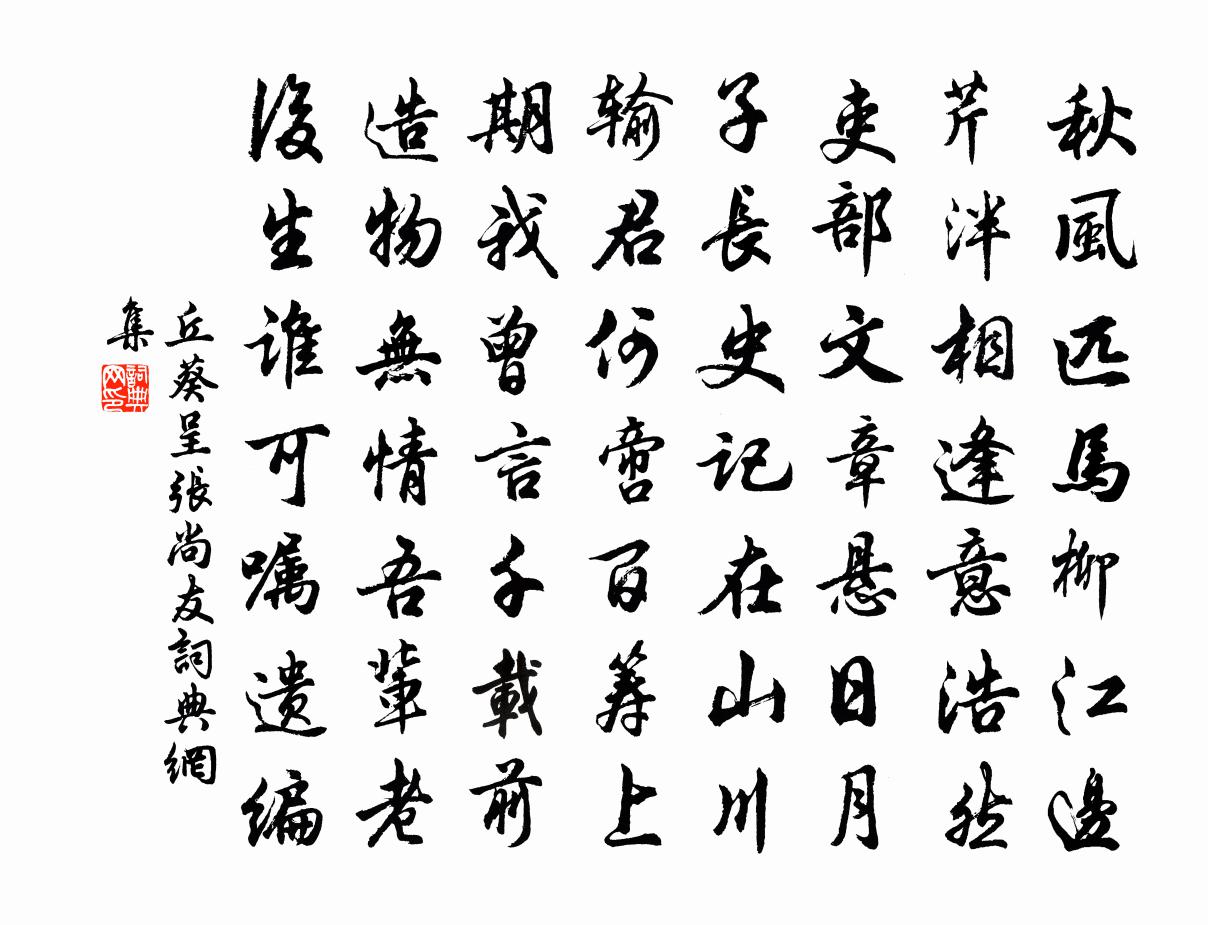 秋風匹馬柳江邊
芹泮相逢意浩然
吏部文章悬日月
子長史記在山川
输君何啻百筹上
期我曾言千載前
造物無情吾輩老
後生谁可嘱遗编
丘葵呈張尚友詞典網
集
詞典网印